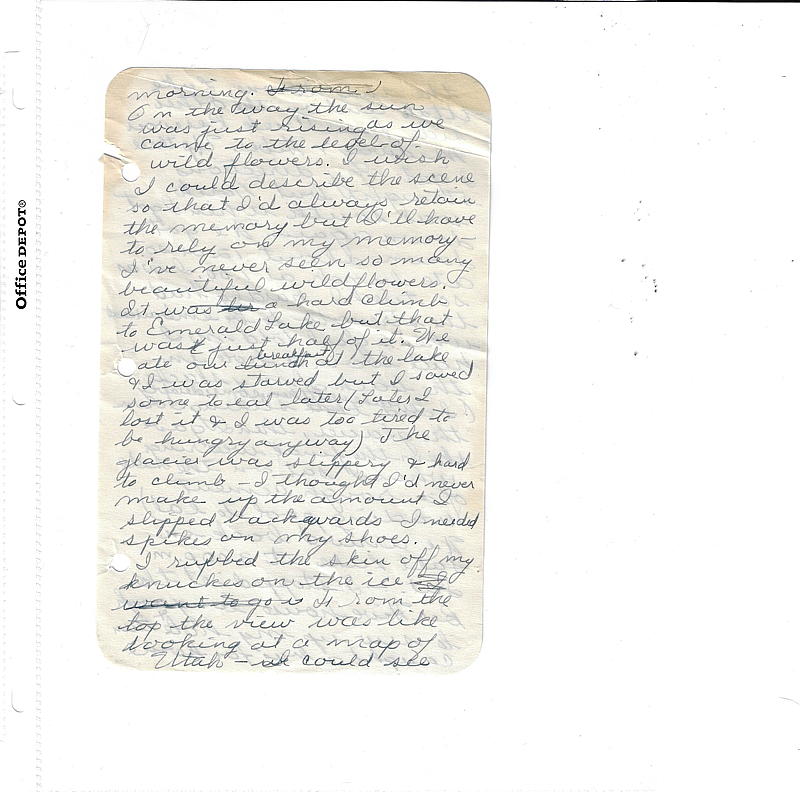 Office DEPOT®
morning. From I
On the way the sun
was just rising as we
came to the level of
wild flowers. I wish
I could describe the scene
so that I'd always retain
the memory but I'll have
to rely on my memory –
I've never seen so many
beautiful wildflowers.
It was a hard climb
to Emerald Lake but that
was just half of it. We
ate our lunch breakfast at the lake
& I was starved but I saved
some to eat later (Later I
lost it & I was too tired to
be hungry anyway) The
glacier was slippery & hard
to climb – I thought I'd never
make up the amount I
slipped backwards I needed
spikes on my shoes.
I rubbed the skin off my
knuckes on the ice I
want to go From the
top the view was like
looking at a map of
Utah – could see